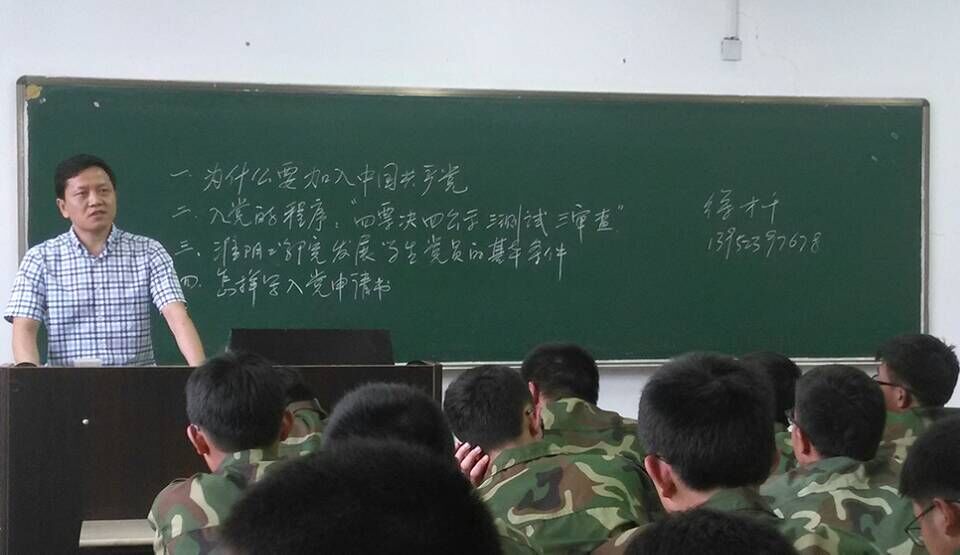 一.为什么要加入中国共产党
二.入党的程序："四票决四公示三测试三审查"
三、淮阴工学院发展学生党员的基本条件
四.怎样写入党申请书
13952397678